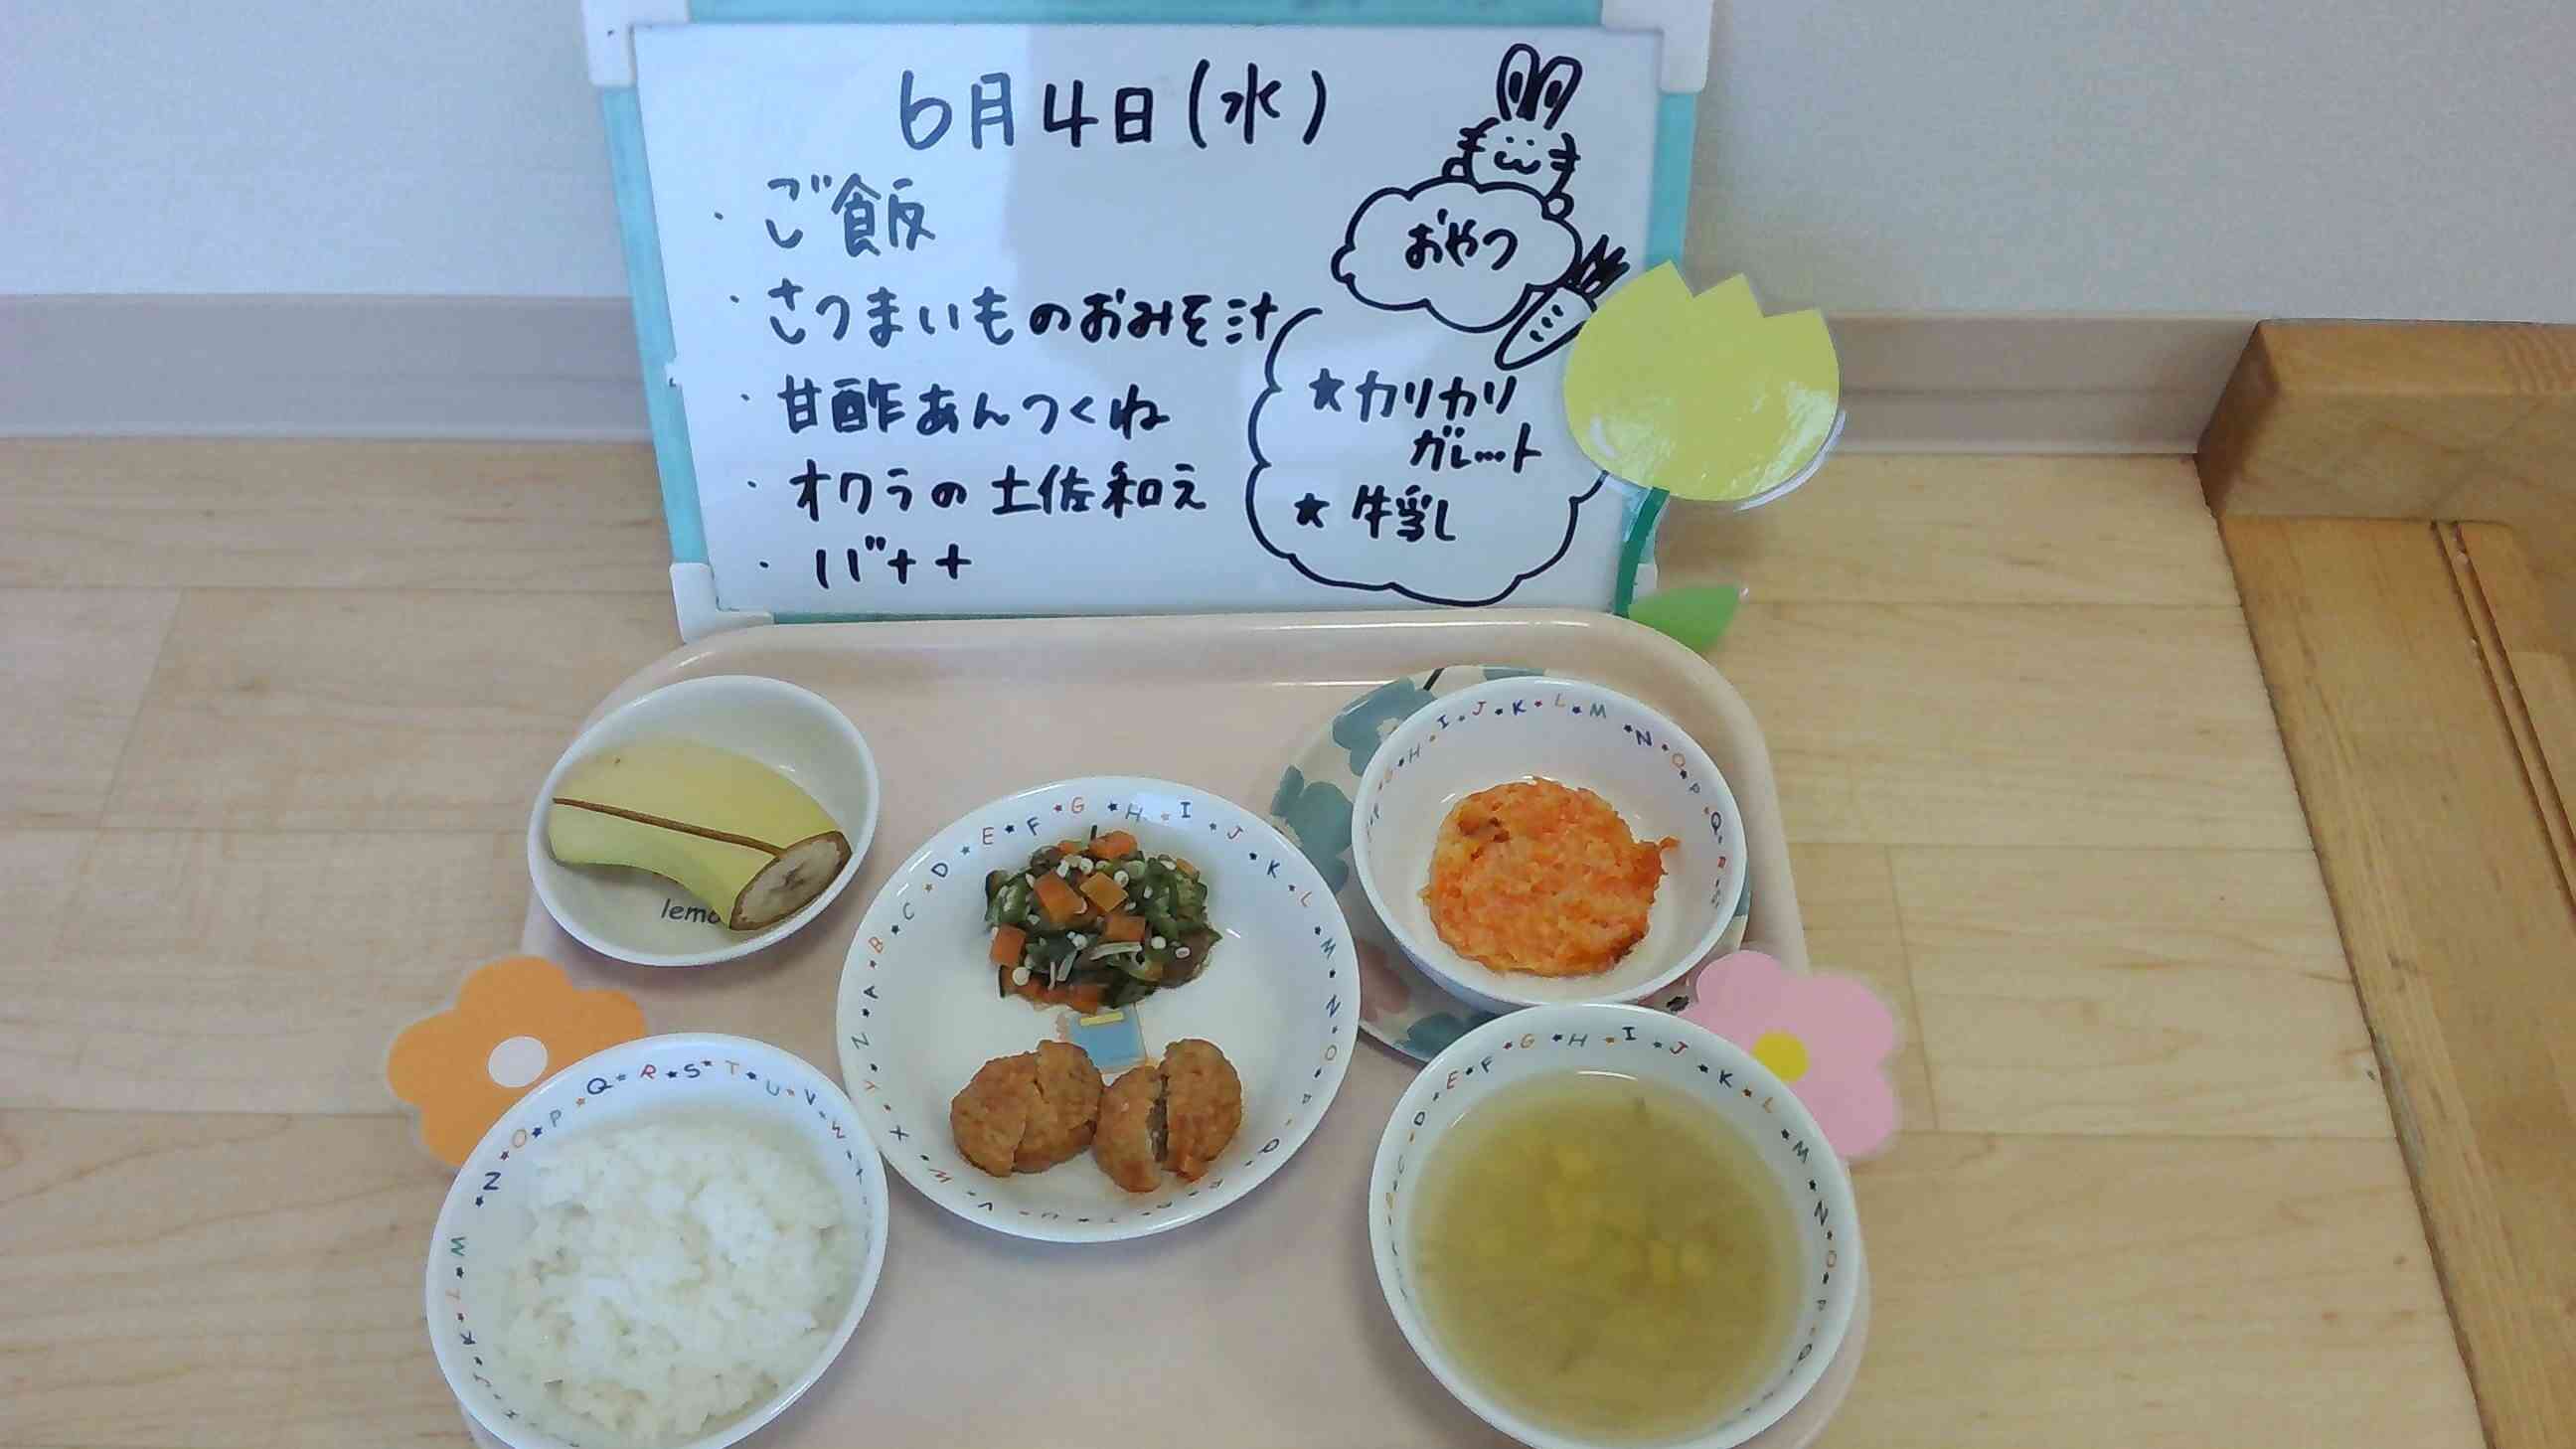 6月4日(水)
・ご飯
・さつまいものおみそ汁
・甘酢あんつくね
・オクラの土佐和え
・バナナ
おやつ
★カリカリ
ガレット
★牛乳
A B C D E F G H I J K L M N O P Q
V W X Y Z
G H I J K L M N O P Q R S
J K L M N O P Q R S T U V W
C D E F G H I J K L M N O P Q